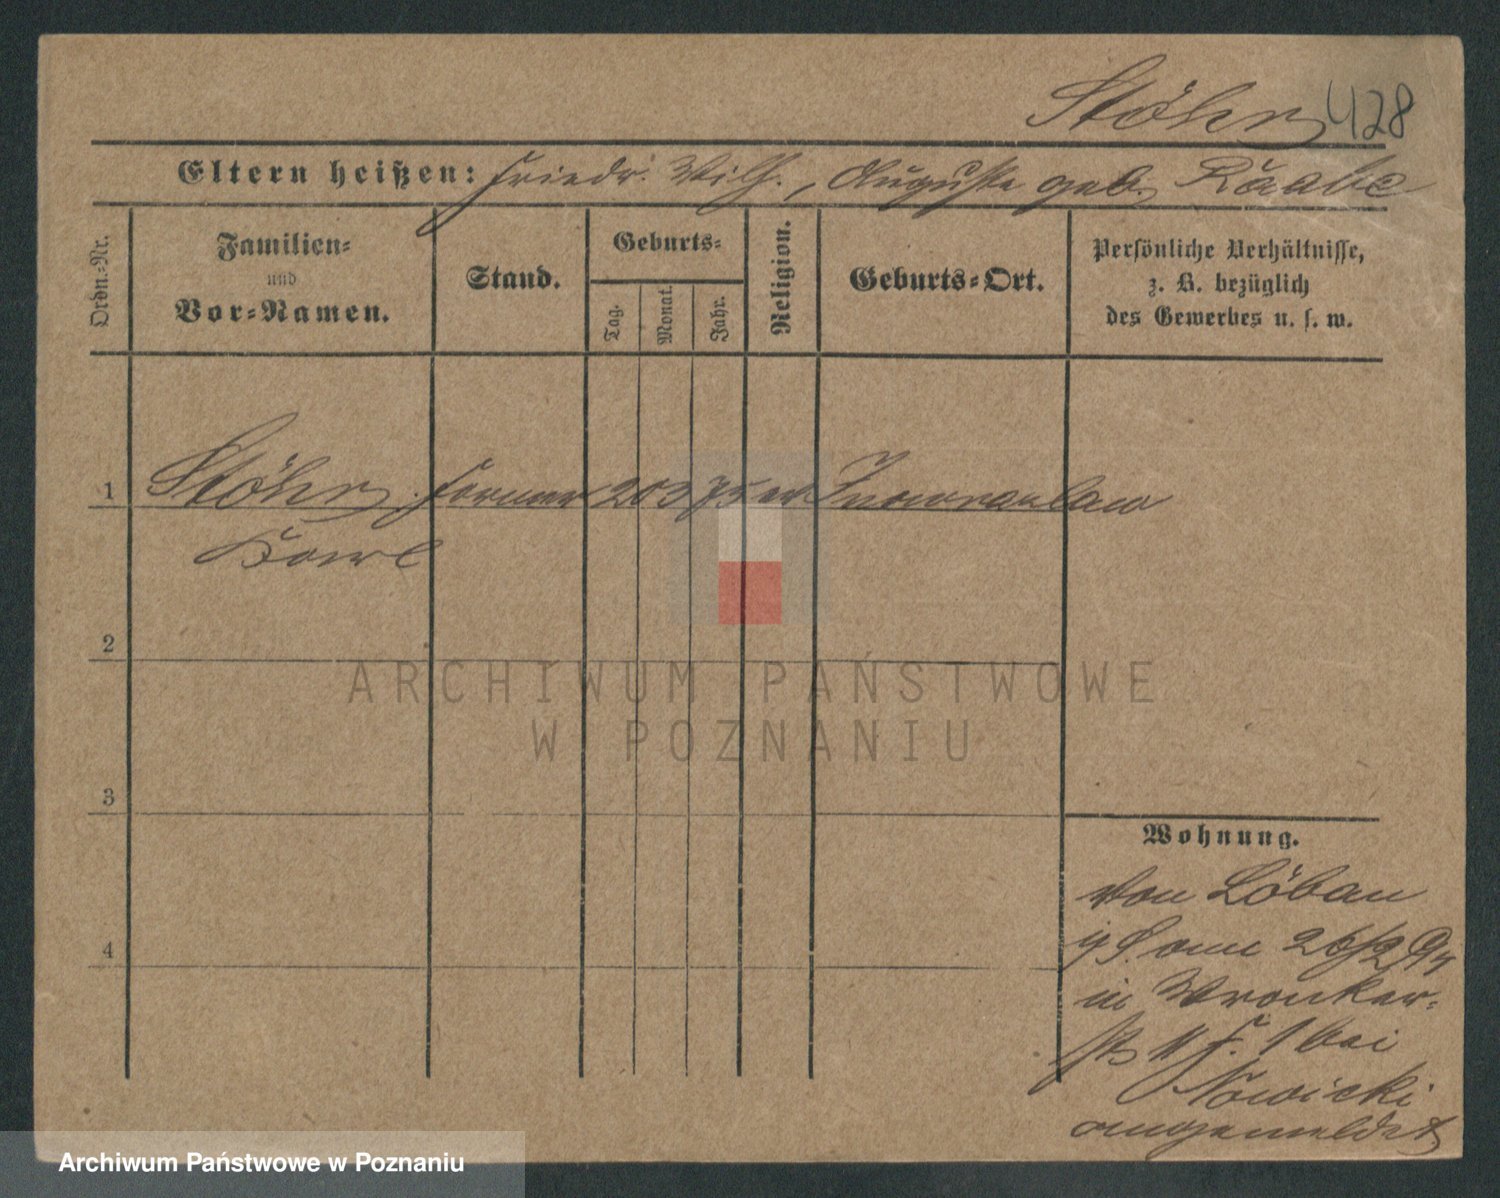 Stöhr 428
Eltern heißen: Friedr. Wilh., Auguste geb. Raabe
Ordn.-Nr.
Familien-
und
Vor-Namen.
Stand.
Geburts-
Tag.
Monat.
Jahr.
Religion.
Geburts-Ort.
Persönliche Verhältnisse,
z. B. bezüglich
des Gewerbes u. s. w.
1 Stöhr Former 20 3 75 ev Inowrazlaw
Karl
2
3
4
Wohnung.
von Löbau
26/2 94
in Wronker-
1 bei
Nowicki
angemeldet
ARCHIWUM PAŃSTWOWE
W POZNANIU
Archiwum Państwowe w Poznaniu